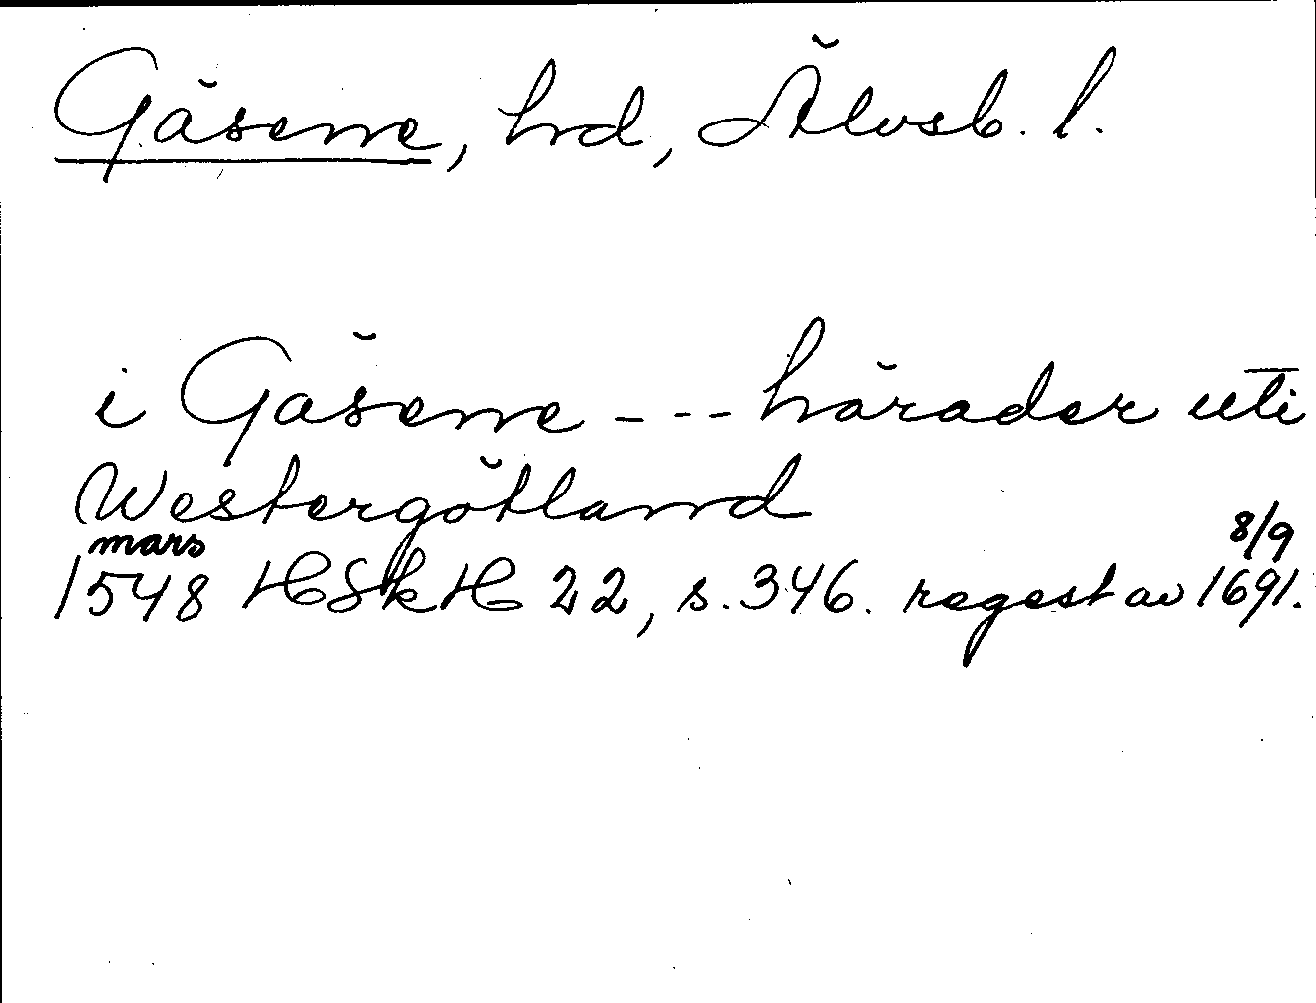 Gäsene, hd, Älvsb. l.
i Gäsene --- härader uti
Westergötland
mars 8/9
1548 HSkH 22, s. 346. regest av 1691.